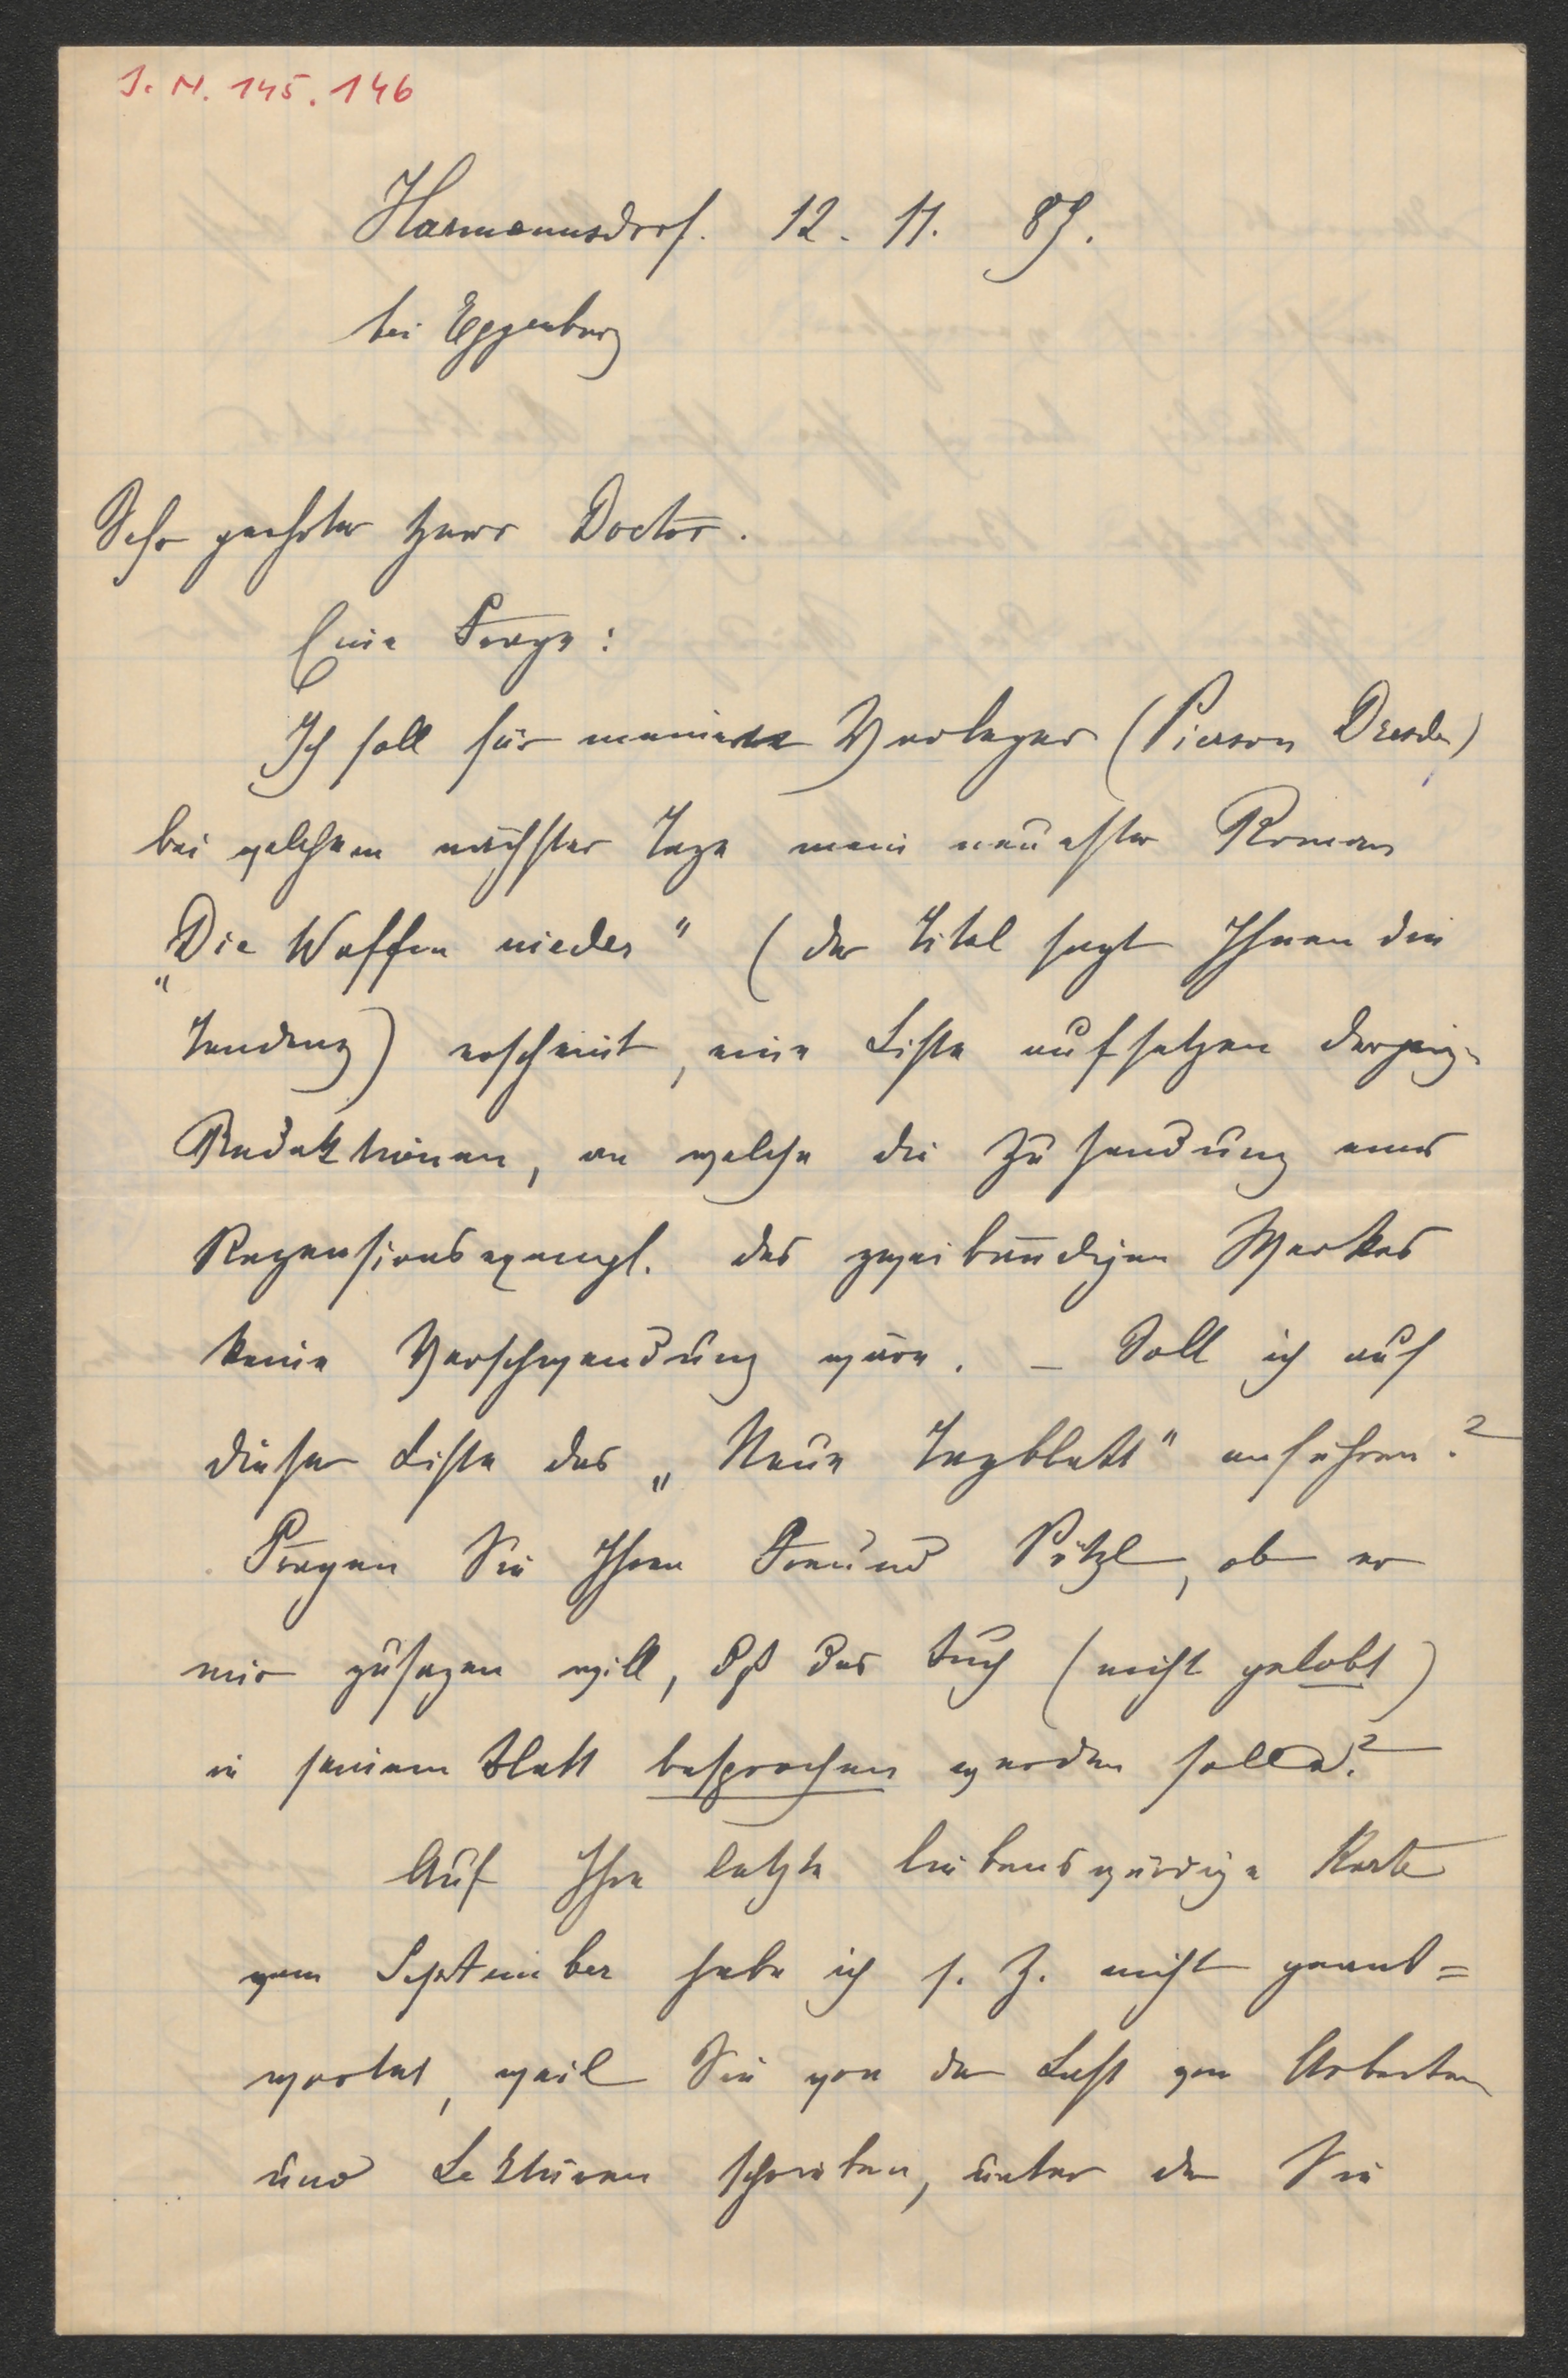 I. N. 145.146
Harmannsdorf. 12. 11. 89.
bei Eggenburg
Sehr geehrter Herr Doctor.
Eine Frage:
Ich soll für meinen Verleger (Pierson Dresden)
bei welchem nächster Tage mein neuester Roman
„Die Waffen nieder" (der Titel sagt Ihnen die
Tendenz) erscheint, eine Liste aufsetzen derjenig.
Redaktionen, an welche die Zusendung eines
Rezensionsexempl. des zweibändigen Werkes
keine Verschwendung wäre. – Soll ich auf
dieser Liste das „Neue Tagblatt" anführen?
Fragen Sie Ihren Freund Pötzl, ob er
mir zusagen will, daß das Buch (nicht gelobt)
in seinem Blatt besprochen werden solle?
Auf Ihre letzte liebenswürdige Karte
vom September habe ich s. Z. nicht geant=
wortet, weil Sie von der Last von Arbeiten
und Lektüren schrieben, unter der Sie